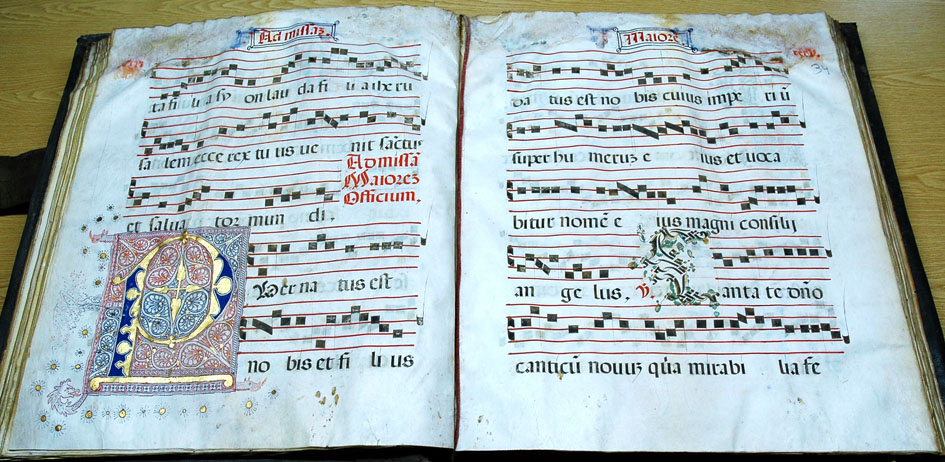 Ad missaz
ta fi li a sy on lau da fi li a iheru
salem ecce rex tu us ve nit sāctus
Ad missā
Maiorez
Officium.
et salva tor mun di.
Puer na tus est
no bis et fi li us
Maiorē
da tus est no bis cuius impe riū
super hu meruz e ius et voca
bitur nomē e ius magni consilij
an ge lus. V. Canta te dn̄o
canticū novuz quia mirabi lia fe